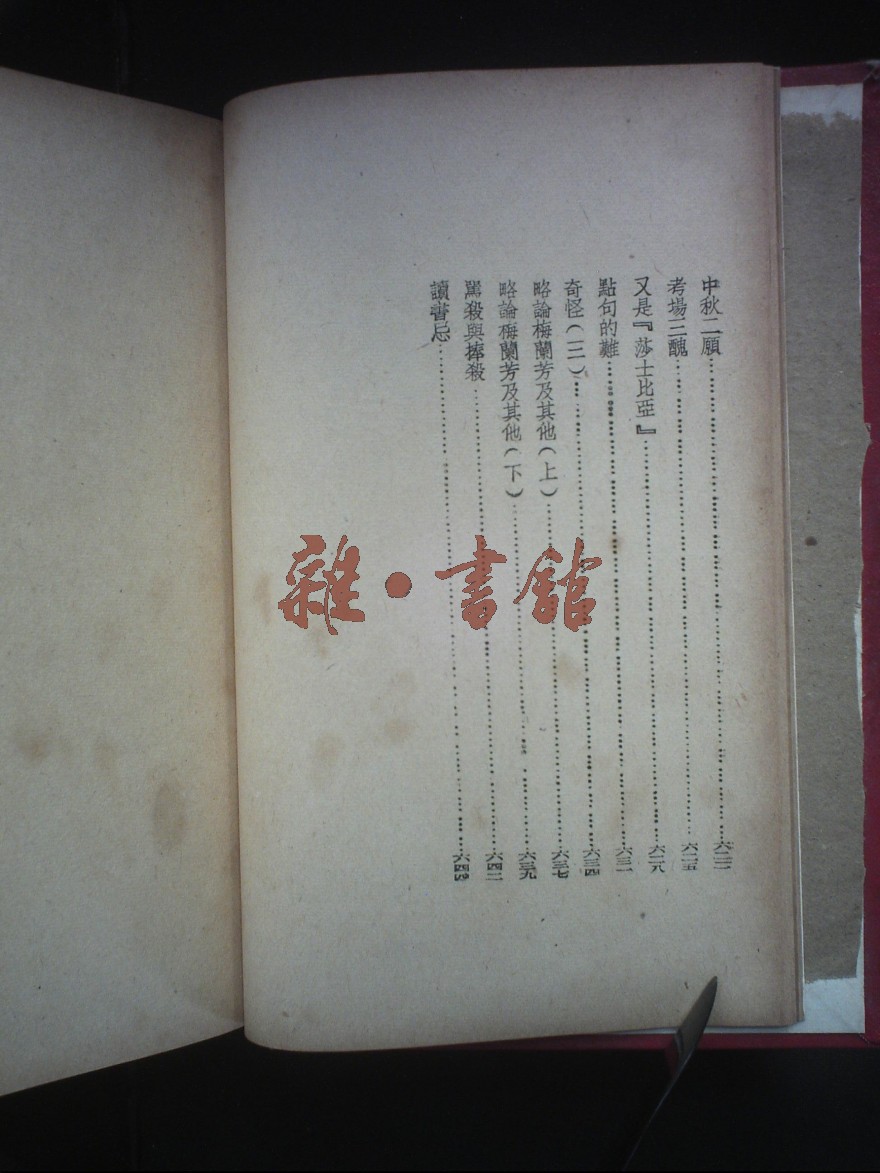 中秋二願……六二二
考場三醜……六二五
又是『莎士比亞』……六二八
點句的難……六三一
奇怪（三）……六三四
略論梅蘭芳及其他（上）……六三七
略論梅蘭芳及其他（下）……六三九
罵殺與捧殺……六四二
讀書忌……六四四
雜·書館